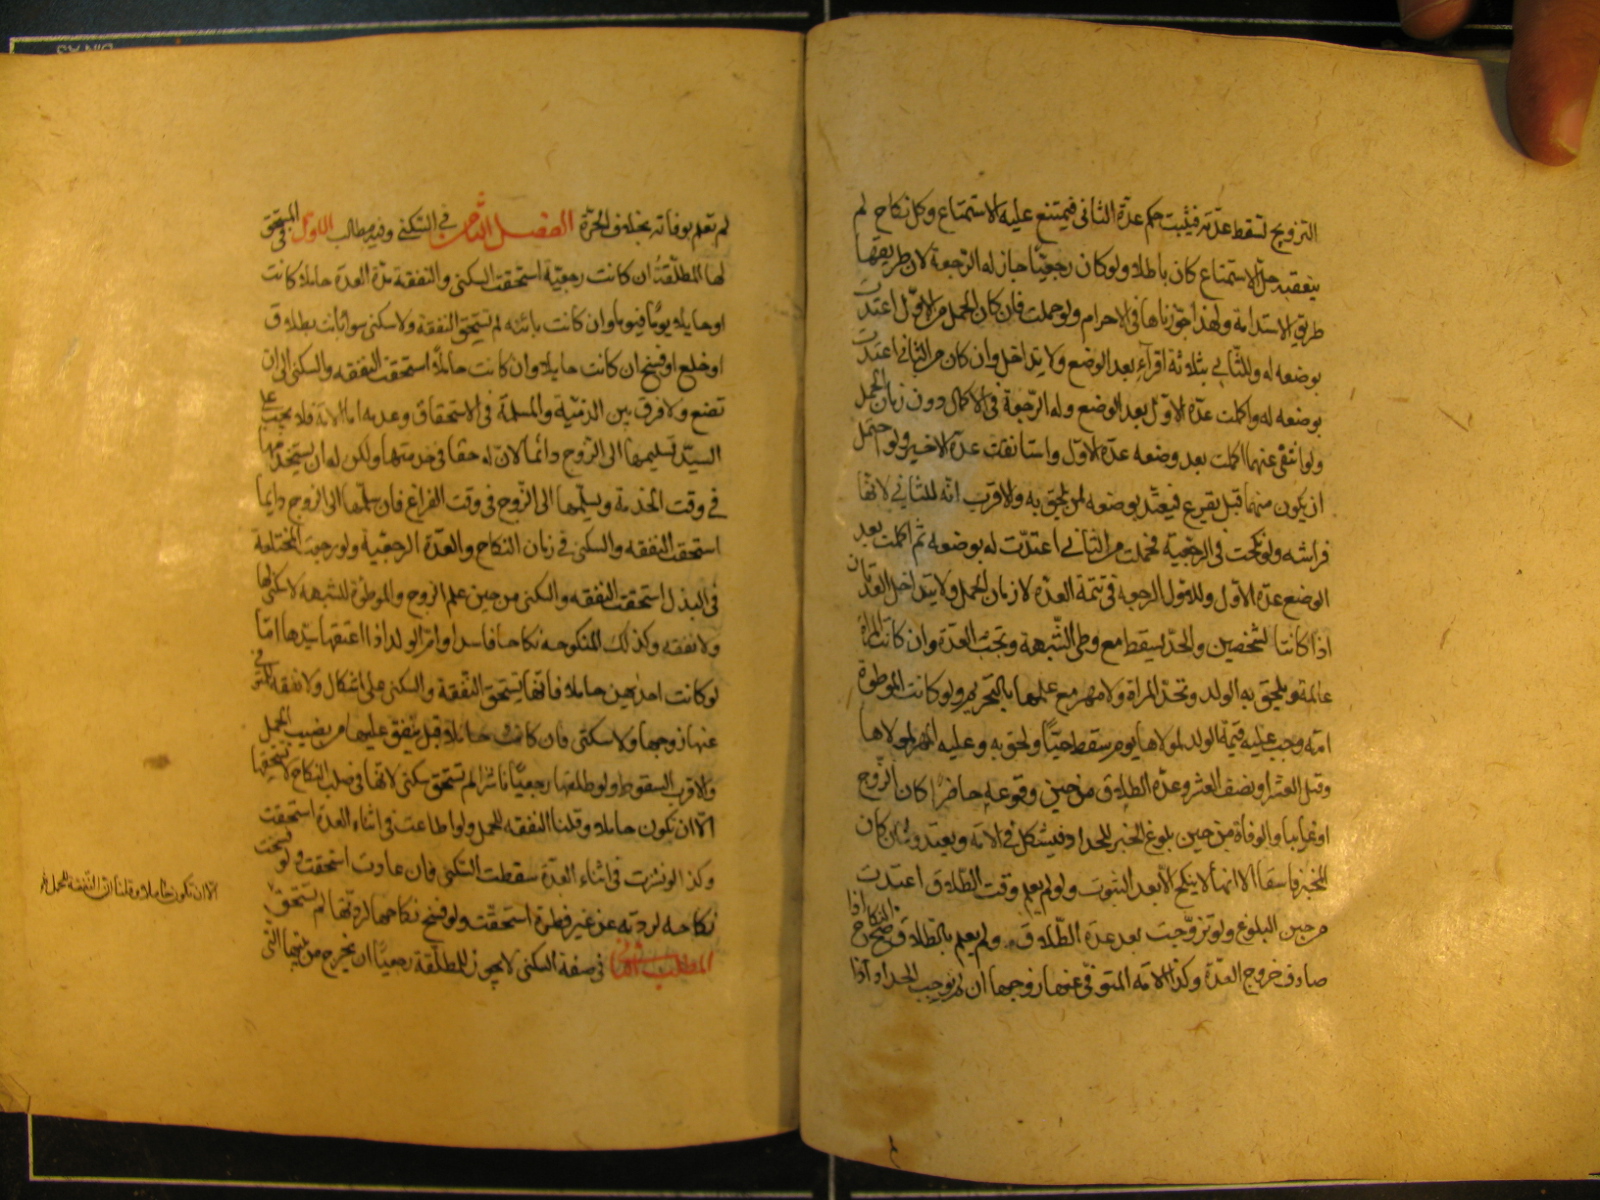 التزويج لتسقط عدّته فيثبت حكم عدّة الثانى فيمتنع عليه الاستمتاع وكل نكاح لم
يتعقبه حلّ الاستمتاع كان باطلا ولو كان رجعيّا جاز له الرّجعة لان طريقها
طريق الاستدامة ولهذا جوّزناها فى الاحرام ولو حملت فان كان الحمل من الاوّل اعتدّت
بوضعه له وللثّاني بثلاثة اقراء بعد الوضع ولا يتداخل وان كان من الثانى اعتدّت
بوضعه له واكملت عدّة الاوّل بعد الوضع وله الرّجعة فى الاكمال دون زمان الحمل
ولو انتفى عنهما اكملت بعد وضعه عدّة الاوّل واستانفت عدّة الاخير ولو احتمل
ان يكون منهما قيل يقرع فيعتدّ بوضعه لمن يلحق به والاقرب انّه للثاني لانّها
فراشه ولو نكحت فى الرجعية فحملت من الثاني اعتدّت له بوضعه ثم اكملت بعد
الوضع عدّة الاوّل وللاوّل الرجعة فى تتمة العدّة لا زمان الحمل ولا يتداخل العدّتان
اذا كانتا لشخصين والحدّ يسقط مع وطى الشّبهة وتجب العدّة وان كانت المراة
عالمة ويلحق به الولد وتحدّ المراة ولا مهر مع علمها بالتحريم ولو كانت الموطوة
امة وجب عليه قيمة الولد لمولاها يوم سقط حيّاً ولحق به وعليه المهر لمولاها
وقيل العشر او نصف العشر وعدّة الطلاق من حين وقوعه حاضرا كان الزّوج
او غايبا والوفاة من حين بلوغ الخبر للحداد فيشكل فى الامة ويعتدّ وان كان
المخبر فاسقا الا انها لا ينكح الا بعد الثبوت ولو لم يعلم وقت الطّلاق اعتدّت
من حين البلوغ ولو تزوّجت بعد عدّة الطّلاق ولم يعلم بالطلاق صحّ النكاح اذا
صادف خروج العدّة وكذا الامة المتوفّى عنها زوجها ان لم نوجب الحداد اذا
لم تعلم بوفاته بخلاف الحرّة الفصل الثامن فى السّكنى وفيه مطالب الاوّل المستحق
لها المطلّقة ان كانت رجعيّة استحقت السكنى والنفقة مدّة العدة حاملا كانت
او حايلا يوما فيوما وان كانت بائنة لم تستحق النفقة ولا سكنى سوا بانت بطلاق
او خلع او فسخ ان كانت حايلا وان كانت حاملا استحقت النفقه والسكنى الى ان
تضع ولا فرق بين الذمّية والمسلمة فى الاستحقاق وعدمه اما الامة فلا يجب على
السيّد تسليمها الى الزّوج دائما لانّ له حقّا فى خدمتها ولكن له ان يستخدمها
فى وقت الخدمة ويسلّمها الى الزّوج فى وقت الفراغ فان سلّمها الى الزوج دايما
استحقت النفقه والسكنى فى زمان النكاح والعدّة الرجعية ولو رجعت المختلعة
فى البذل استحقت النفقه والسكنى من حين علم الزوج والموطوءة للشبهة لا سكنى لها
ولا نفقه وكذلك المنكوحه نكاحا فاسدا وامّ الولد اذا اعتقها سيّدها امّا
لو كانت احديهن حاملا فانّها تستحق النّفقة والسكنى على اشكال ولا نفقه للمتوفى
عنها زوجها ولا سكنى فان كانت حاملا قيل ينفق عليها من نصيب الحمل
والاقرب السقوط ولو طلقها رجعيّا ناشزا لم تستحق سكنى لانّها فى صلب النكاح لا تستحقها
الّا ان تكون حاملا وقلنا النفقه للحمل ولو اطاعت فى اثناء العدّة استحقت
وكذا لو نشزت فى اثناء العدّة سقطت السّكنى فان عادت استحقت ولو فسخت
نكاحه لردته عن غير فطرة استحقّت ولو فسخ نكاحها لردّتها لم تستحق
المطلب الثانى فى صفة السكنى لا يجوز للمطلّقة رجعيّا ان يخرج من بيتها الّتى
الّا ان تكون حاملا وقلنا انّ النّفقة للحمل